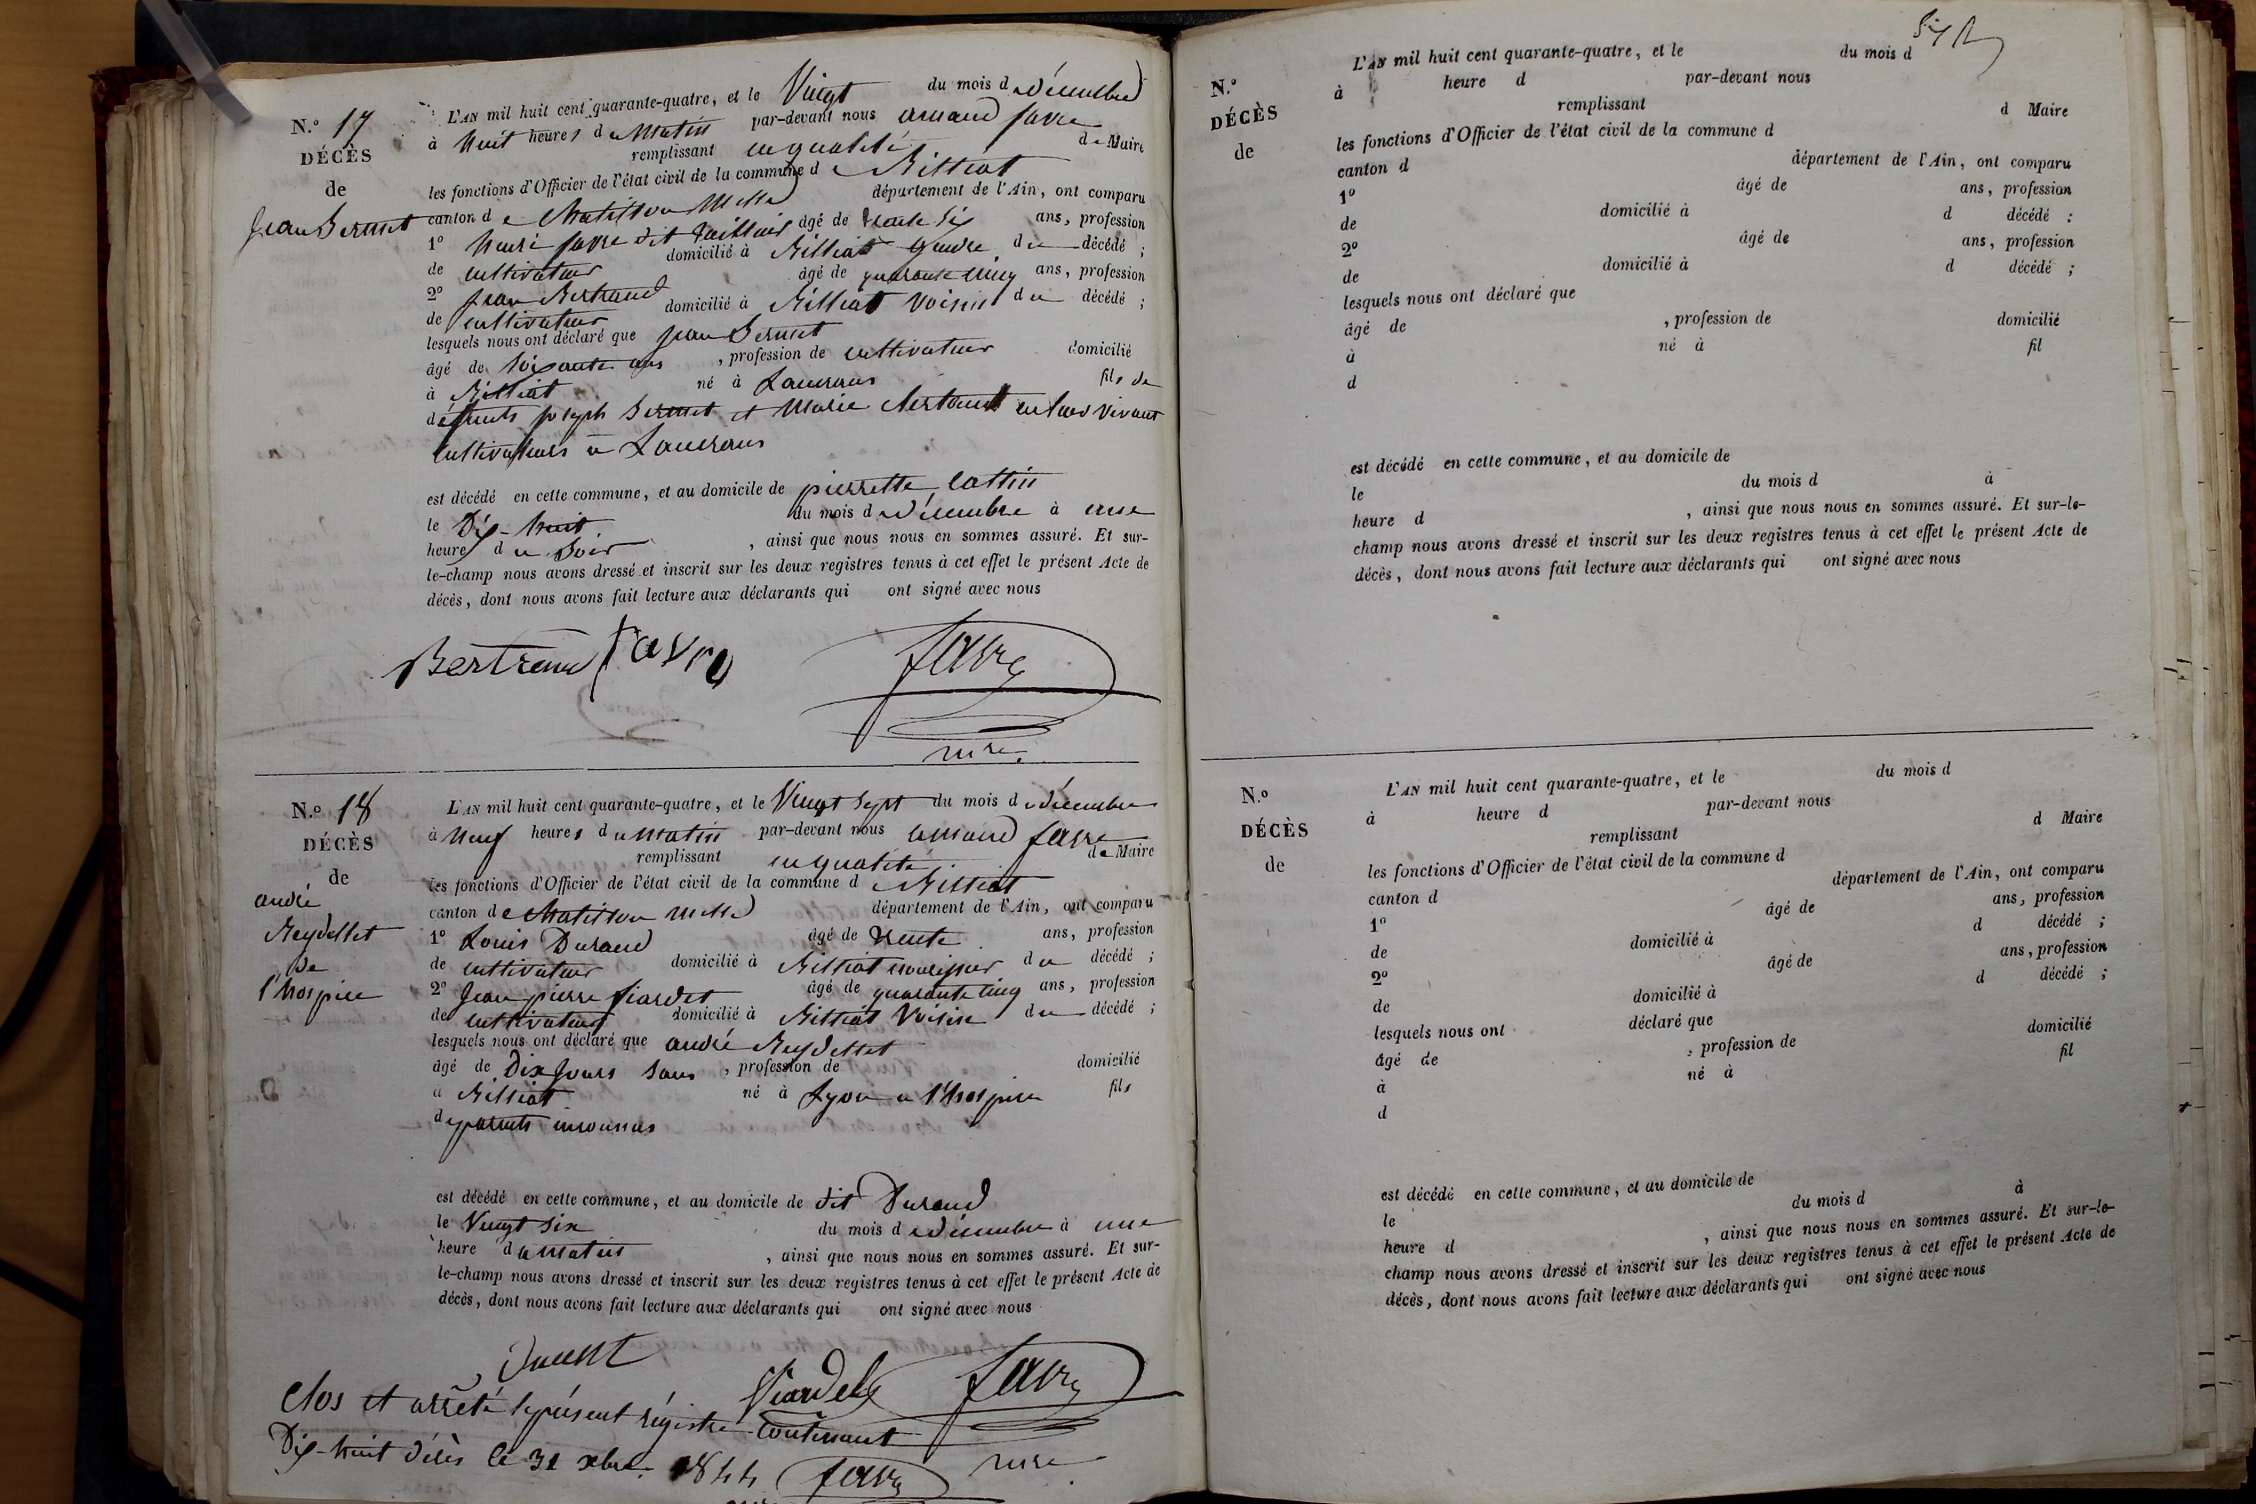 N.º 17
DÉCÈS
de
Jean Sermet
L'AN mil huit cent quarante-quatre, et le Vingt du mois d e décembre
à huit heures d u matin par-devant nous armand favre
remplissant en qualité d e Maire
les fonctions d'Officier de l'état civil de la commune d e Billiat
canton d e Chatillon Mlle département de l'Ain, ont comparu
1º favre dit âgé de trente six ans, profession
de cultivateur domicilié à Billiat gendre d u décédé ;
2º jean Bertrand âgé de quarante cinq ans, profession
de cultivateur domicilié à Billiat voisin d u décédé ;
lesquels nous ont déclaré que jean Sermet
âgé de soixante ans , profession de cultivateur domicilié
à Billiat né à Lancrans fils de
défunts joseph Sermet et Marie en leur vivant
cultivateurs a Lancrans
est décédé en cette commune, et au domicile de pierrette Cottin
le Dix-huit du mois d e décembre à une
heure d u soir , ainsi que nous nous en sommes assuré. Et sur-
le-champ nous avons dressé et inscrit sur les deux registres tenus à cet effet le présent Acte de
décès, dont nous avons fait lecture aux déclarants qui ont signé avec nous
Bertrand favre favre
mre.
N.º 18
DÉCÈS
de
andré
Reydellet
De
l'hospice
L'AN mil huit cent quarante-quatre, et le Vingt sept du mois d e décembre
à neuf heures d u matin par-devant nous armand favre
remplissant en qualité de Maire
les fonctions d'Officier de l'état civil de la commune d e Billiat
canton d e Chatillon Mlle département de l'Ain, ont comparu
1º Louis Durand âgé de trente ans, profession
de cultivateur domicilié à Billiat nourissier d u décédé ;
2º Jean pierre Viardet âgé de quarante cinq ans, profession
de cultivateur domicilié à Billiat Voisin d u décédé ;
lesquels nous ont déclaré que andré Reydellet
âgé de Dix jours sans , profession de domicilié
à Billiat né à Lyon a l'hospice fils
de parents inconnus
est décédé en cette commune, et au domicile de dit Durand
le Vingt six du mois d e décembre à une
heure d u matin , ainsi que nous nous en sommes assuré. Et sur-
le-champ nous avons dressé et inscrit sur les deux registres tenus à cet effet le présent Acte de
décès, dont nous avons fait lecture aux déclarants qui ont signé avec nous
Viardet favre
mre
Clos et arrêté le présent régistre Contenant
Dix-huit décès le 31 xbre 1844 favre
N.º
DÉCÈS
de
L'AN mil huit cent quarante-quatre, et le du mois d
à heure d par-devant nous
remplissant d Maire
les fonctions d'Officier de l'état civil de la commune d
canton d département de l'Ain, ont comparu
1º âgé de ans, profession
de domicilié à d décédé ;
2º âgé de ans, profession
de domicilié à d décédé ;
lesquels nous ont déclaré que
âgé de , profession de domicilié
à né à fil
d
est décédé en cette commune, et au domicile de
le du mois d à
heure d , ainsi que nous nous en sommes assuré. Et sur-le-
champ nous avons dressé et inscrit sur les deux registres tenus à cet effet le présent Acte de
décès, dont nous avons fait lecture aux déclarants qui ont signé avec nous
N.º
DÉCÈS
de
L'AN mil huit cent quarante-quatre, et le du mois d
à heure d par-devant nous
remplissant d Maire
les fonctions d'Officier de l'état civil de la commune d
canton d département de l'Ain, ont comparu
1º âgé de ans, profession
de domicilié à d décédé ;
2º âgé de ans, profession
de domicilié à d décédé ;
lesquels nous ont déclaré que
âgé de , profession de domicilié
à né à fil
d
est décédé en cette commune, et au domicile de
le du mois d à
heure d , ainsi que nous nous en sommes assuré. Et sur-le-
champ nous avons dressé et inscrit sur les deux registres tenus à cet effet le présent Acte de
décès, dont nous avons fait lecture aux déclarants qui ont signé avec nous